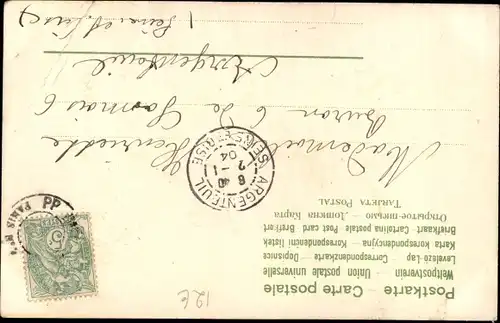 Postkarte - Carte postale
Weltpostverein - Union postale universelle
Levelező-Lap - Correspondenzkarte - Dopisnice
Karta korespondencyjna - Korespondenční lístek
Brevkaart - Cartolina postale - Post card - Brefkort
Открытое письмо - Дописна Карта
Tarjeta Postal
PARIS
PP
5
ARGENTEUIL
6 40
2 - 1
04
(SEINE-ET-OISE)
Mademoiselle Henriette
6
Argenteuil
(Seine et Oise)
12€